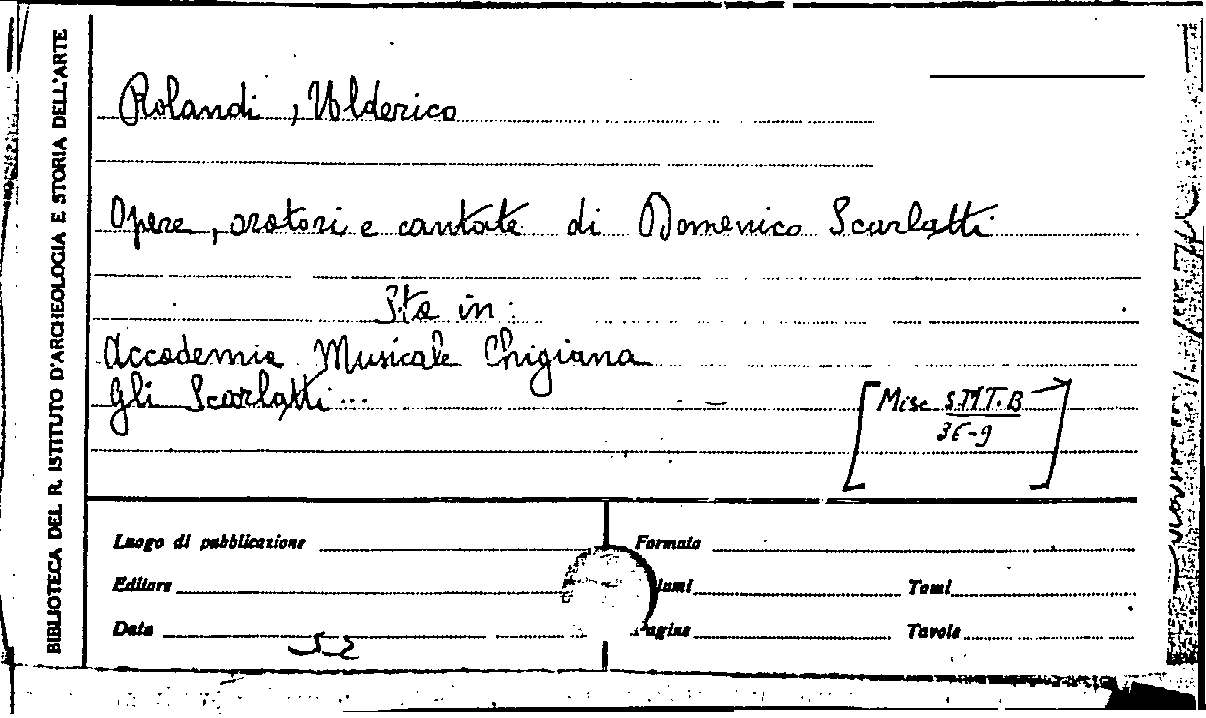 BIBLIOTECA DEL R. ISTITUTO D'ARCHEOLOGIA E STORIA DELL'ARTE
Rolandi, Ulderico
Opere, oratori e cantate di Domenico Scarlatti
Sta in:
Accademia Musicale Chigiana
Gli Scarlatti...
[Misc S.M.T.B
3E-9]
Luogo di pubblicazione
Formato
Editore
Tomi
Data
Tavole